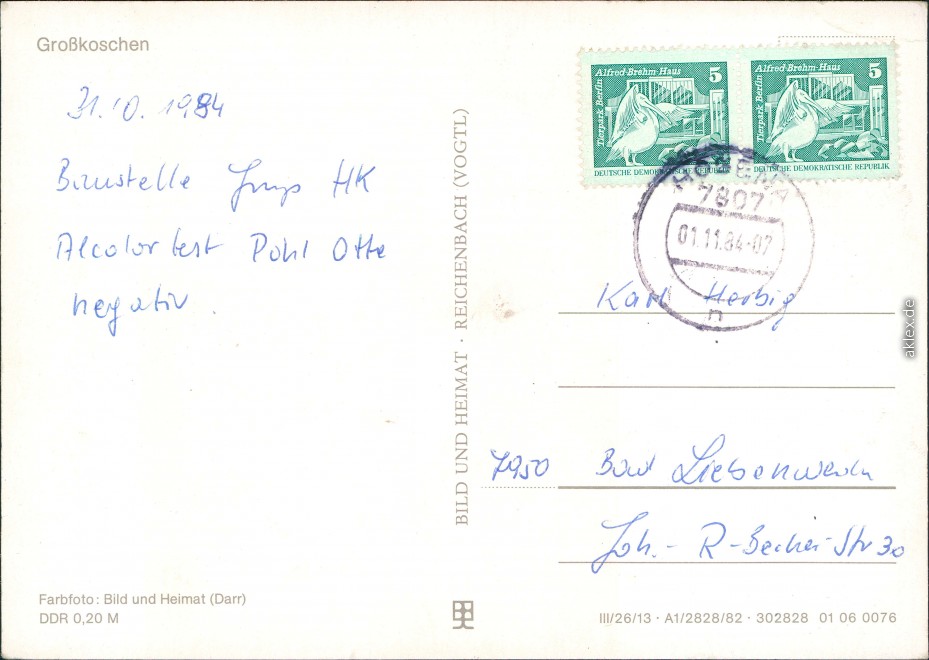 Großkoschen
31.10. 1984
Baustelle HK
Alcolortest Pohl Otte
negativ.
BILD UND HEIMAT · REICHENBACH (VOGTL)
Tierpark Berlin
Alfred-Brehm-Haus
5
DEUTSCHE DEMOKRATISCHE REPUBLIK
Tierpark Berlin
Alfred-Brehm-Haus
5
DEUTSCHE DEMOKRATISCHE REPUBLIK
HOSENA
7807
01.11.84-07
n
Karl Herbig
7950 Bad Liebenwerda
Joh.- R-Becher-Str 30
Farbfoto: Bild und Heimat (Darr)
DDR 0,20 M
III/26/13 · A1/2828/82 · 302828 01 06 0076
aklex.de